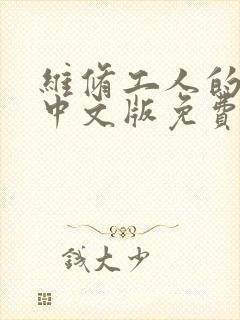 維脩工人的
中文版免費
錢大少